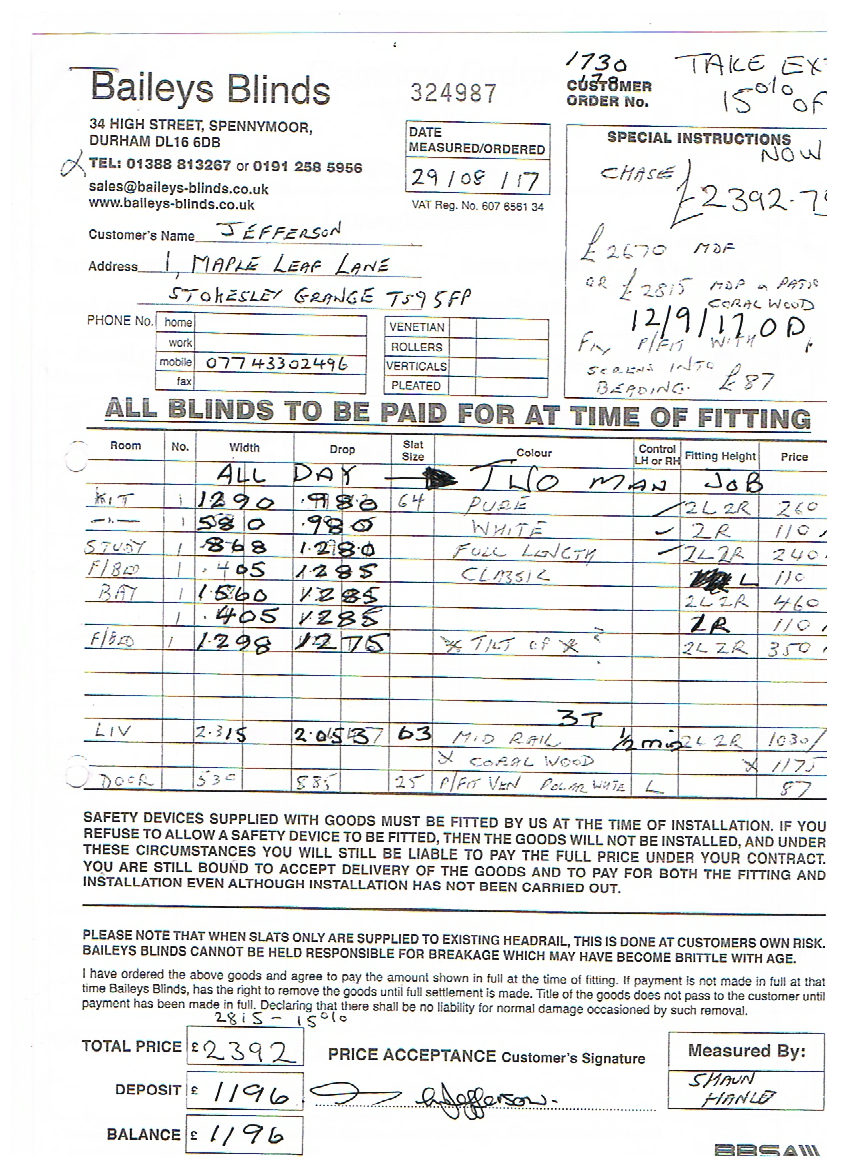 1730 TAKE EX
Baileys Blinds 324987 178 15% OF
CUSTOMER
ORDER No.
34 HIGH STREET, SPENNYMOOR,
DURHAM DL16 6DB
TEL: 01388 813267 or 0191 258 5956
sales@baileys-blinds.co.uk
www.baileys-blinds.co.uk
DATE
MEASURED/ORDERED
29/08/17
VAT Reg. No. 607 6561 34
SPECIAL INSTRUCTIONS
NOW
CHASE £2392-75
£2670 MDF
OR £2815 MDF & PATIO
CORALWOOD
12/9/17 OD
FIX P/FIT WITH
SCREWS INTO
BEADING. £87
Customer's Name JEFFERSON
Address 1, MAPLE LEAF LANE
STOKESLEY GRANGE TS9 5FP
PHONE No. home
work
mobile 07743302496
fax
VENETIAN
ROLLERS
VERTICALS
PLEATED
ALL BLINDS TO BE PAID FOR AT TIME OF FITTING
Room No. Width Drop Slat Size Colour Control LH or RH Fitting Height Price
ALL DAY TWO MAN JOB
KIT 1 1290 .980 64 PURE 2L 2R 260
—"— 1 580 .980 WHITE 2R 110
STUDY 1 .868 1.280 FULL LENGTH 2L 2R 240
F/BED 1 .405 1285 CLASSIC L 110
BAY 1 1560 1285 2L 2R 460
1 .405 1285 1R 110
F/BED 1 1298 1275 * TILT OF * ? 2L 2R 350
3T
LIV 2.315 63 MID RAIL 1/2 min 2L 2R 1030/
X CORAL WOOD X 1175
DOOR 530 885 25 P/FIT VEN POLAR WHITE L 87
SAFETY DEVICES SUPPLIED WITH GOODS MUST BE FITTED BY US AT THE TIME OF INSTALLATION. IF YOU
REFUSE TO ALLOW A SAFETY DEVICE TO BE FITTED, THEN THE GOODS WILL NOT BE INSTALLED, AND UNDER
THESE CIRCUMSTANCES YOU WILL STILL BE LIABLE TO PAY THE FULL PRICE UNDER YOUR CONTRACT.
YOU ARE STILL BOUND TO ACCEPT DELIVERY OF THE GOODS AND TO PAY FOR BOTH THE FITTING AND
INSTALLATION EVEN ALTHOUGH INSTALLATION HAS NOT BEEN CARRIED OUT.
PLEASE NOTE THAT WHEN SLATS ONLY ARE SUPPLIED TO EXISTING HEADRAIL, THIS IS DONE AT CUSTOMERS OWN RISK.
BAILEYS BLINDS CANNOT BE HELD RESPONSIBLE FOR BREAKAGE WHICH MAY HAVE BECOME BRITTLE WITH AGE.
I have ordered the above goods and agree to pay the amount shown in full at the time of fitting. If payment is not made in full at that
time Baileys Blinds, has the right to remove the goods until full settlement is made. Title of the goods does not pass to the customer until
payment has been made in full. Declaring that there shall be no liability for normal damage occasioned by such removal.
2815 - 15%
TOTAL PRICE £2392 PRICE ACCEPTANCE Customer's Signature
DEPOSIT £ 1196 Jefferson.
BALANCE £ 1196
Measured By:
SHAUN
BBSA